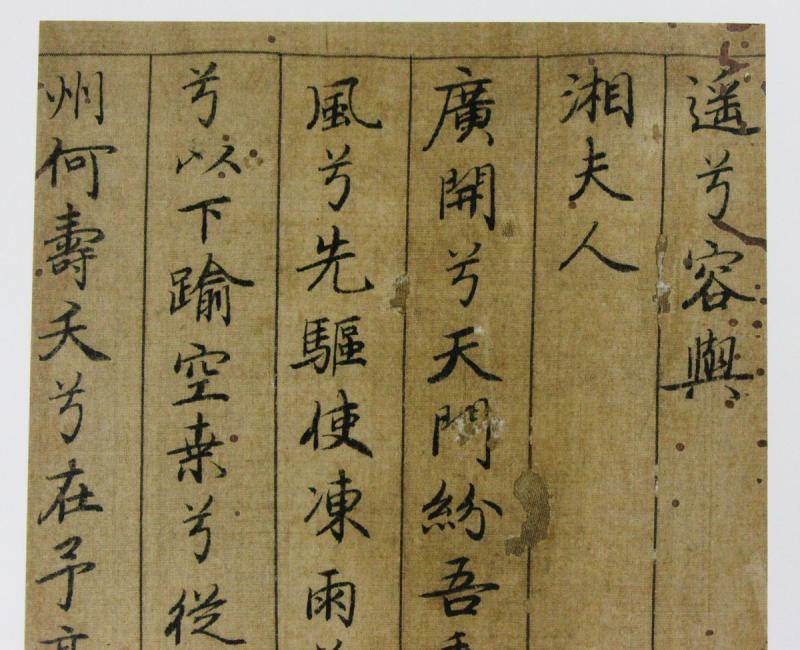 遥兮容與
湘夫人
廣開兮天門紛吾
風兮先驅使凍雨
兮以下踰空桒兮從
州何壽夭兮在予